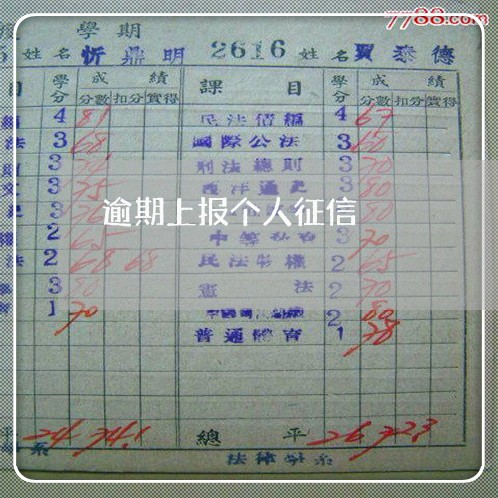 7788.com
學期
姓名 忻鼎明 2616 姓名 賈泰德
目 學分 成績 課目 學分 成績
分數 扣分 實得 分數 扣分 實得
4 81 民法債編 4 67
法 3 68 國際公法 3 60
3 刑法總則 3 70
3 75 西洋通史 3 80
逾期上报个人征信
3 80
2 65 3 70
法 2 68 68 民法物權 2 65
3 80 憲法 2 70
1 70 2 80
普通體育 1 78
平 24 74.1 總平 26 72.3
系 法律學系